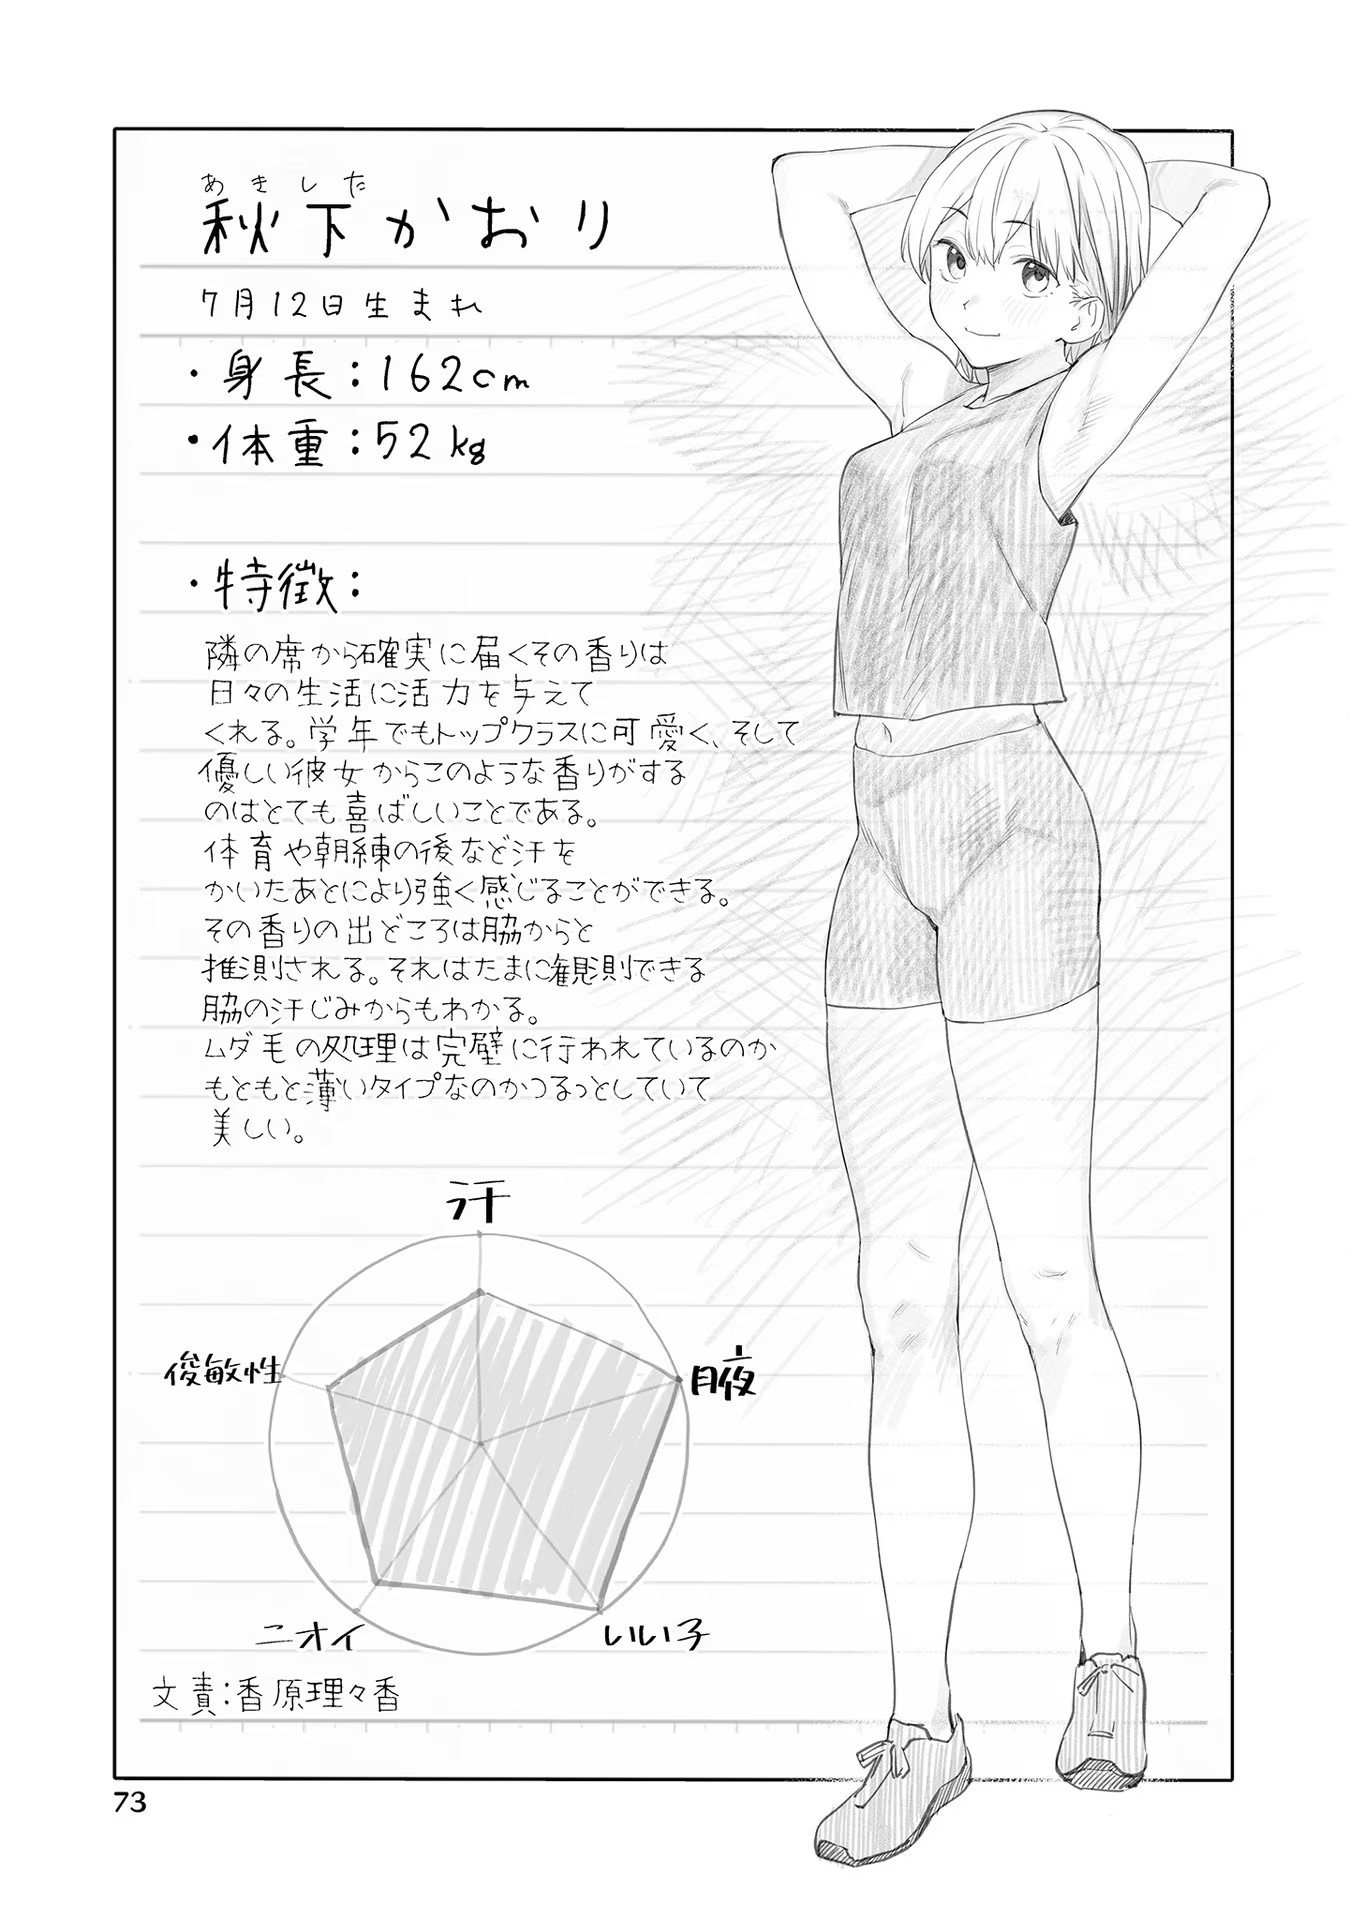 あきした
秋下かおり
7月12日生まれ
・身長：162cm
・体重：52kg
・特徴：
隣の席から確実に届くその香りは
日々の生活に活力を与えて
くれる。学年でもトップクラスに可愛く、そして
優しい彼女からこのような香りがする
のはとても喜ばしいことである。
体育や朝練の後など汗を
かいたあとにより強く感じることができる。
その香りの出どころは脇からと
推測される。それはたまに観測できる
脇の汗じみからもわかる。
ムダ毛の処理は完璧に行われているのか
もともと薄いタイプなのかつるっとしていて
美しい。
汗
俊敏性
腋
ニオイ
いい子
文責：香原理々香
73